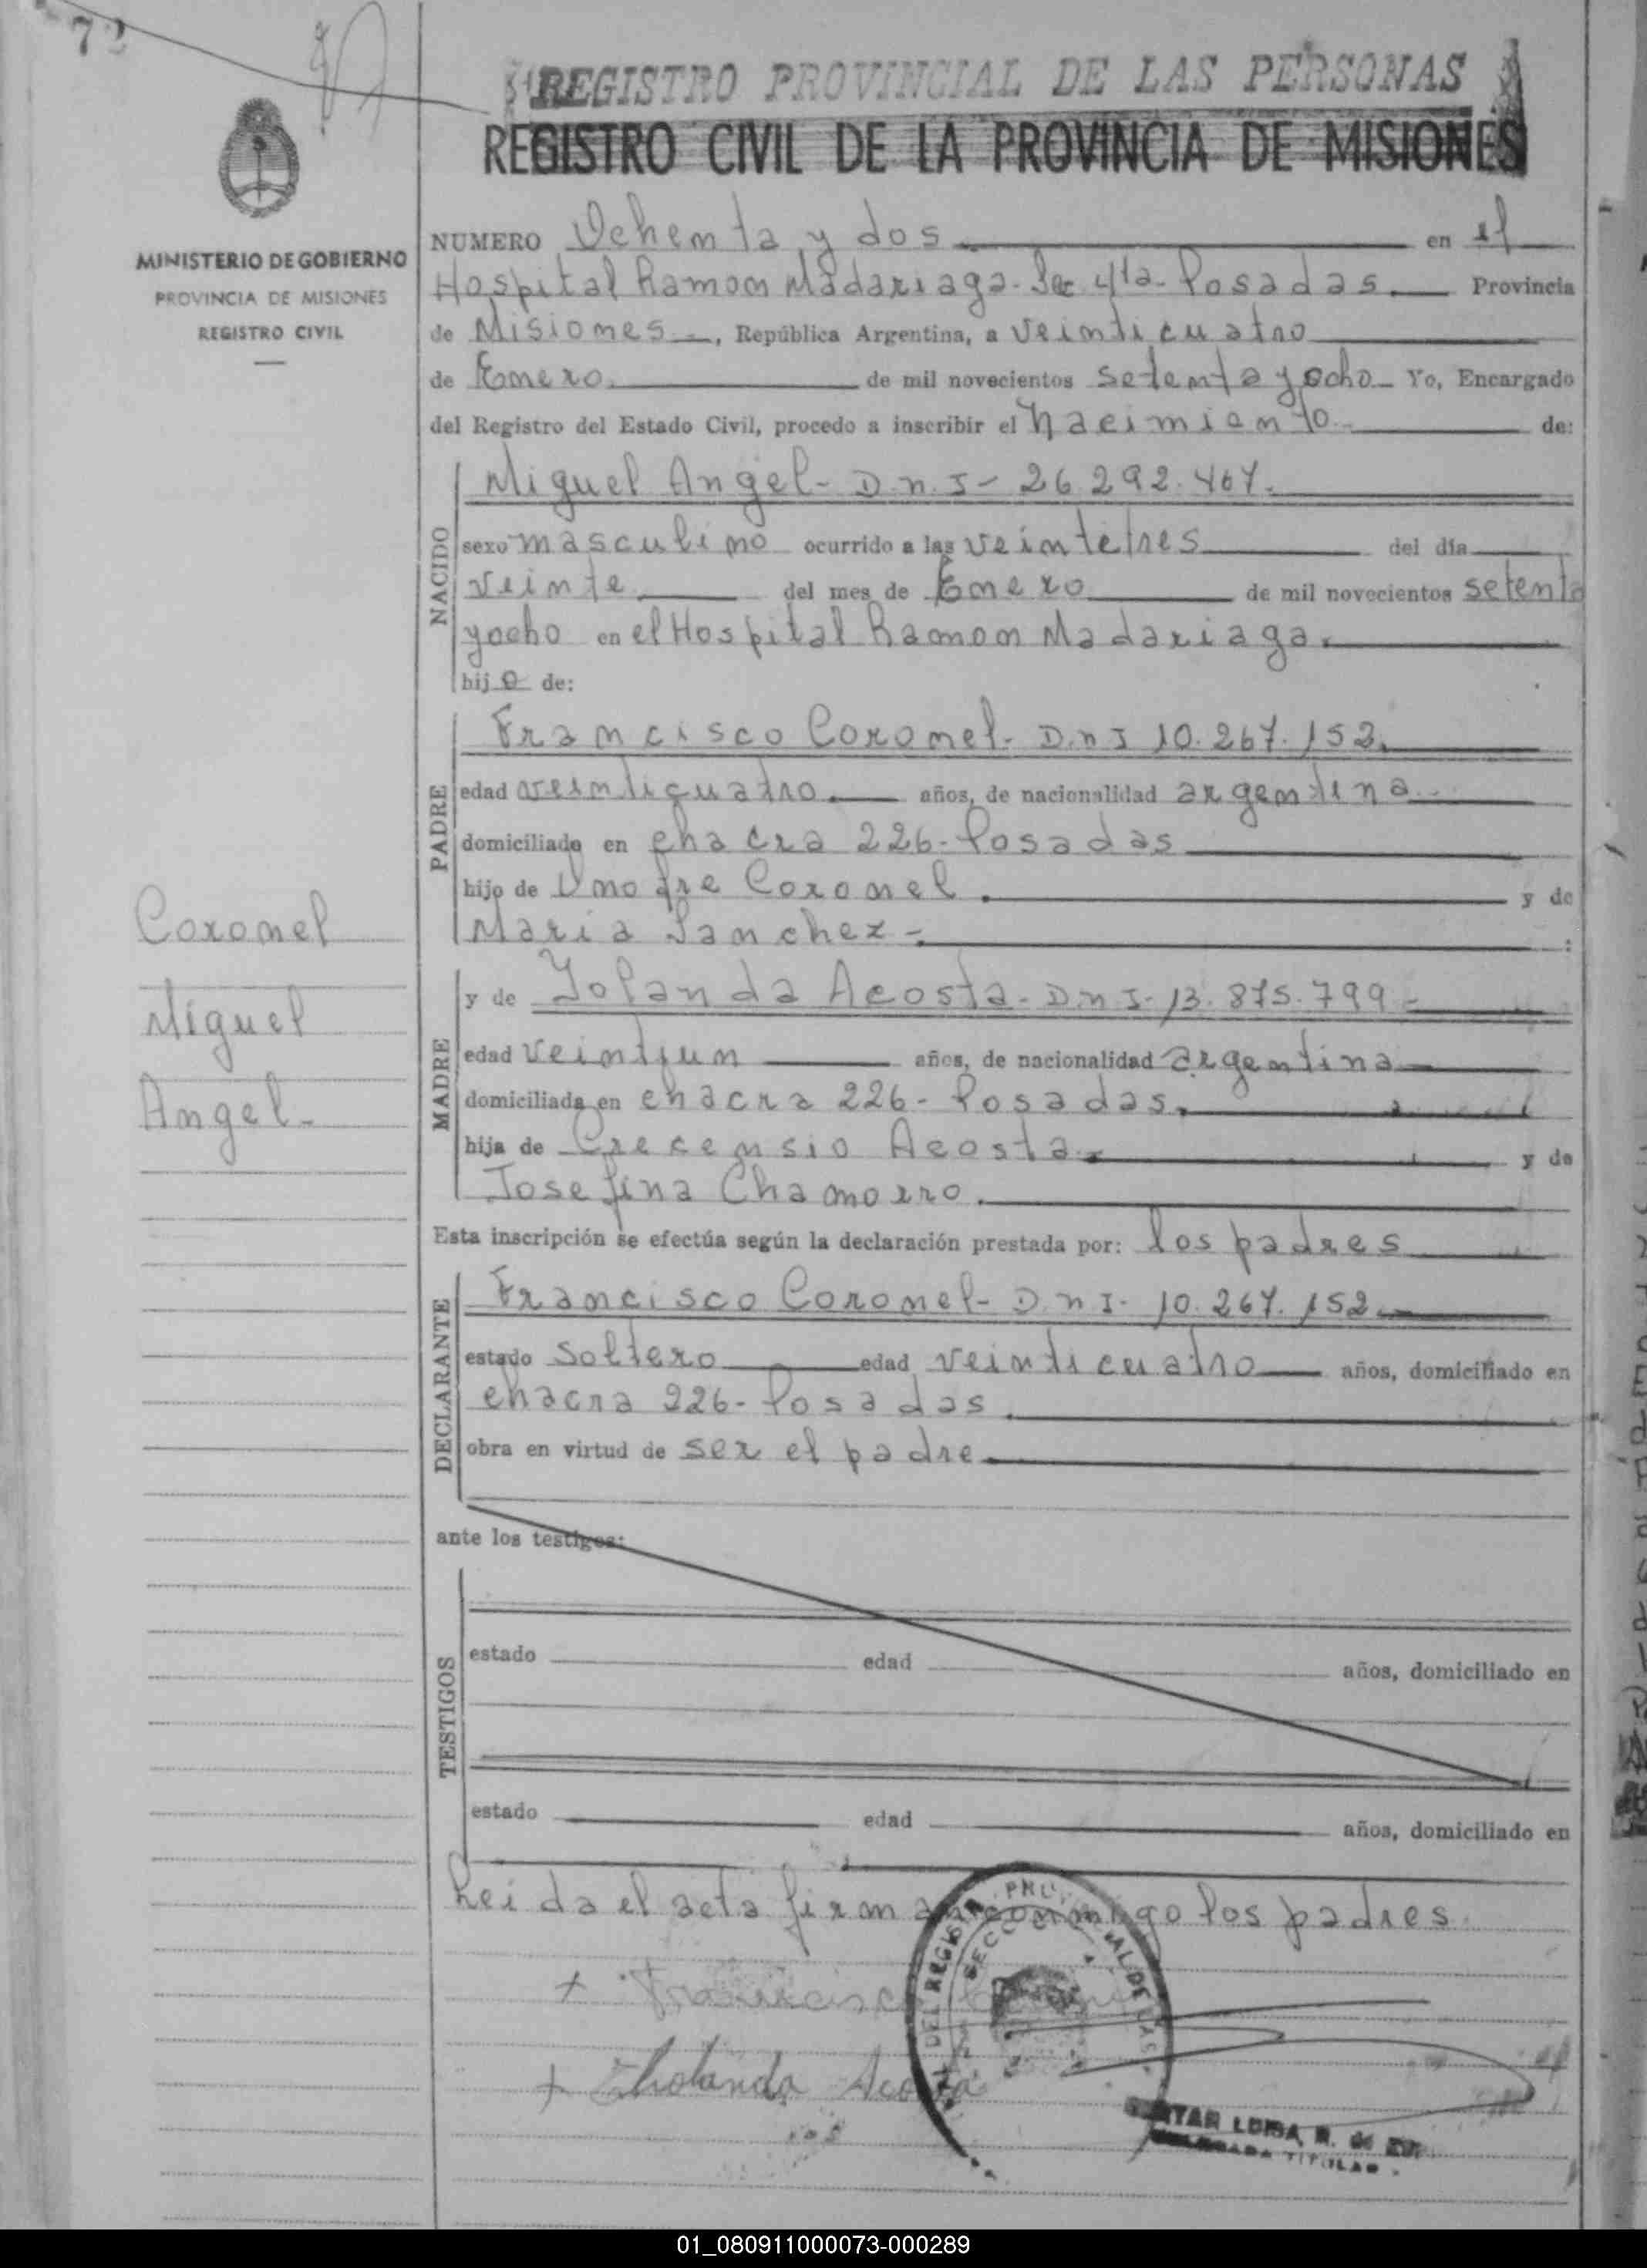 72
REGISTRO PROVINCIAL DE LAS PERSONAS
REGISTRO CIVIL DE LA PROVINCIA DE MISIONES
MINISTERIO DE GOBIERNO
PROVINCIA DE MISIONES
REGISTRO CIVIL
NUMERO Ochenta y dos en el
Hospital Ramon Madariaga - Sec 4ta - Posadas. Provincia
de Misiones -, República Argentina, a veinticuatro
de Enero. de mil novecientos setenta y ocho - Yo, Encargado
del Registro del Estado Civil, procedo a inscribir el nacimiento de:
NACIDO
Miguel Angel - D.n.I - 26.292.467.
sexo masculino ocurrido a las veintetres del día
veinte del mes de Enero de mil novecientos setenta
y ocho en el Hospital Ramon Madariaga.
hijo de:
PADRE
Francisco Coronel - D.n I 10.267.152.
edad veinticuatro. años, de nacionalidad argentina
domiciliado en chacra 226 - Posadas
hijo de Onofre Coronel. y de
Maria Sanchez - :
Coronel
Miguel
Angel -
MADRE
y de Yolanda Acosta - D.n I - 13.875.799 -
edad veintiun años, de nacionalidad argentina
domiciliada en chacra 226 - Posadas.
hija de Crecensio Acosta. y de
Josefina Chamorro.
Esta inscripción se efectúa según la declaración prestada por: los padres
DECLARANTE
Francisco Coronel - D.n I - 10.267.152.
estado soltero edad veinticuatro años, domiciliado en
chacra 226 - Posadas.
obra en virtud de ser el padre
ante los testigos:
TESTIGOS
estado edad años, domiciliado en
estado edad años, domiciliado en
Leida el acta firman conmigo los padres.
+ Francisco
+ Llolanda Acosta
LUISA R. de
TITULAR
01_080911000073-000289